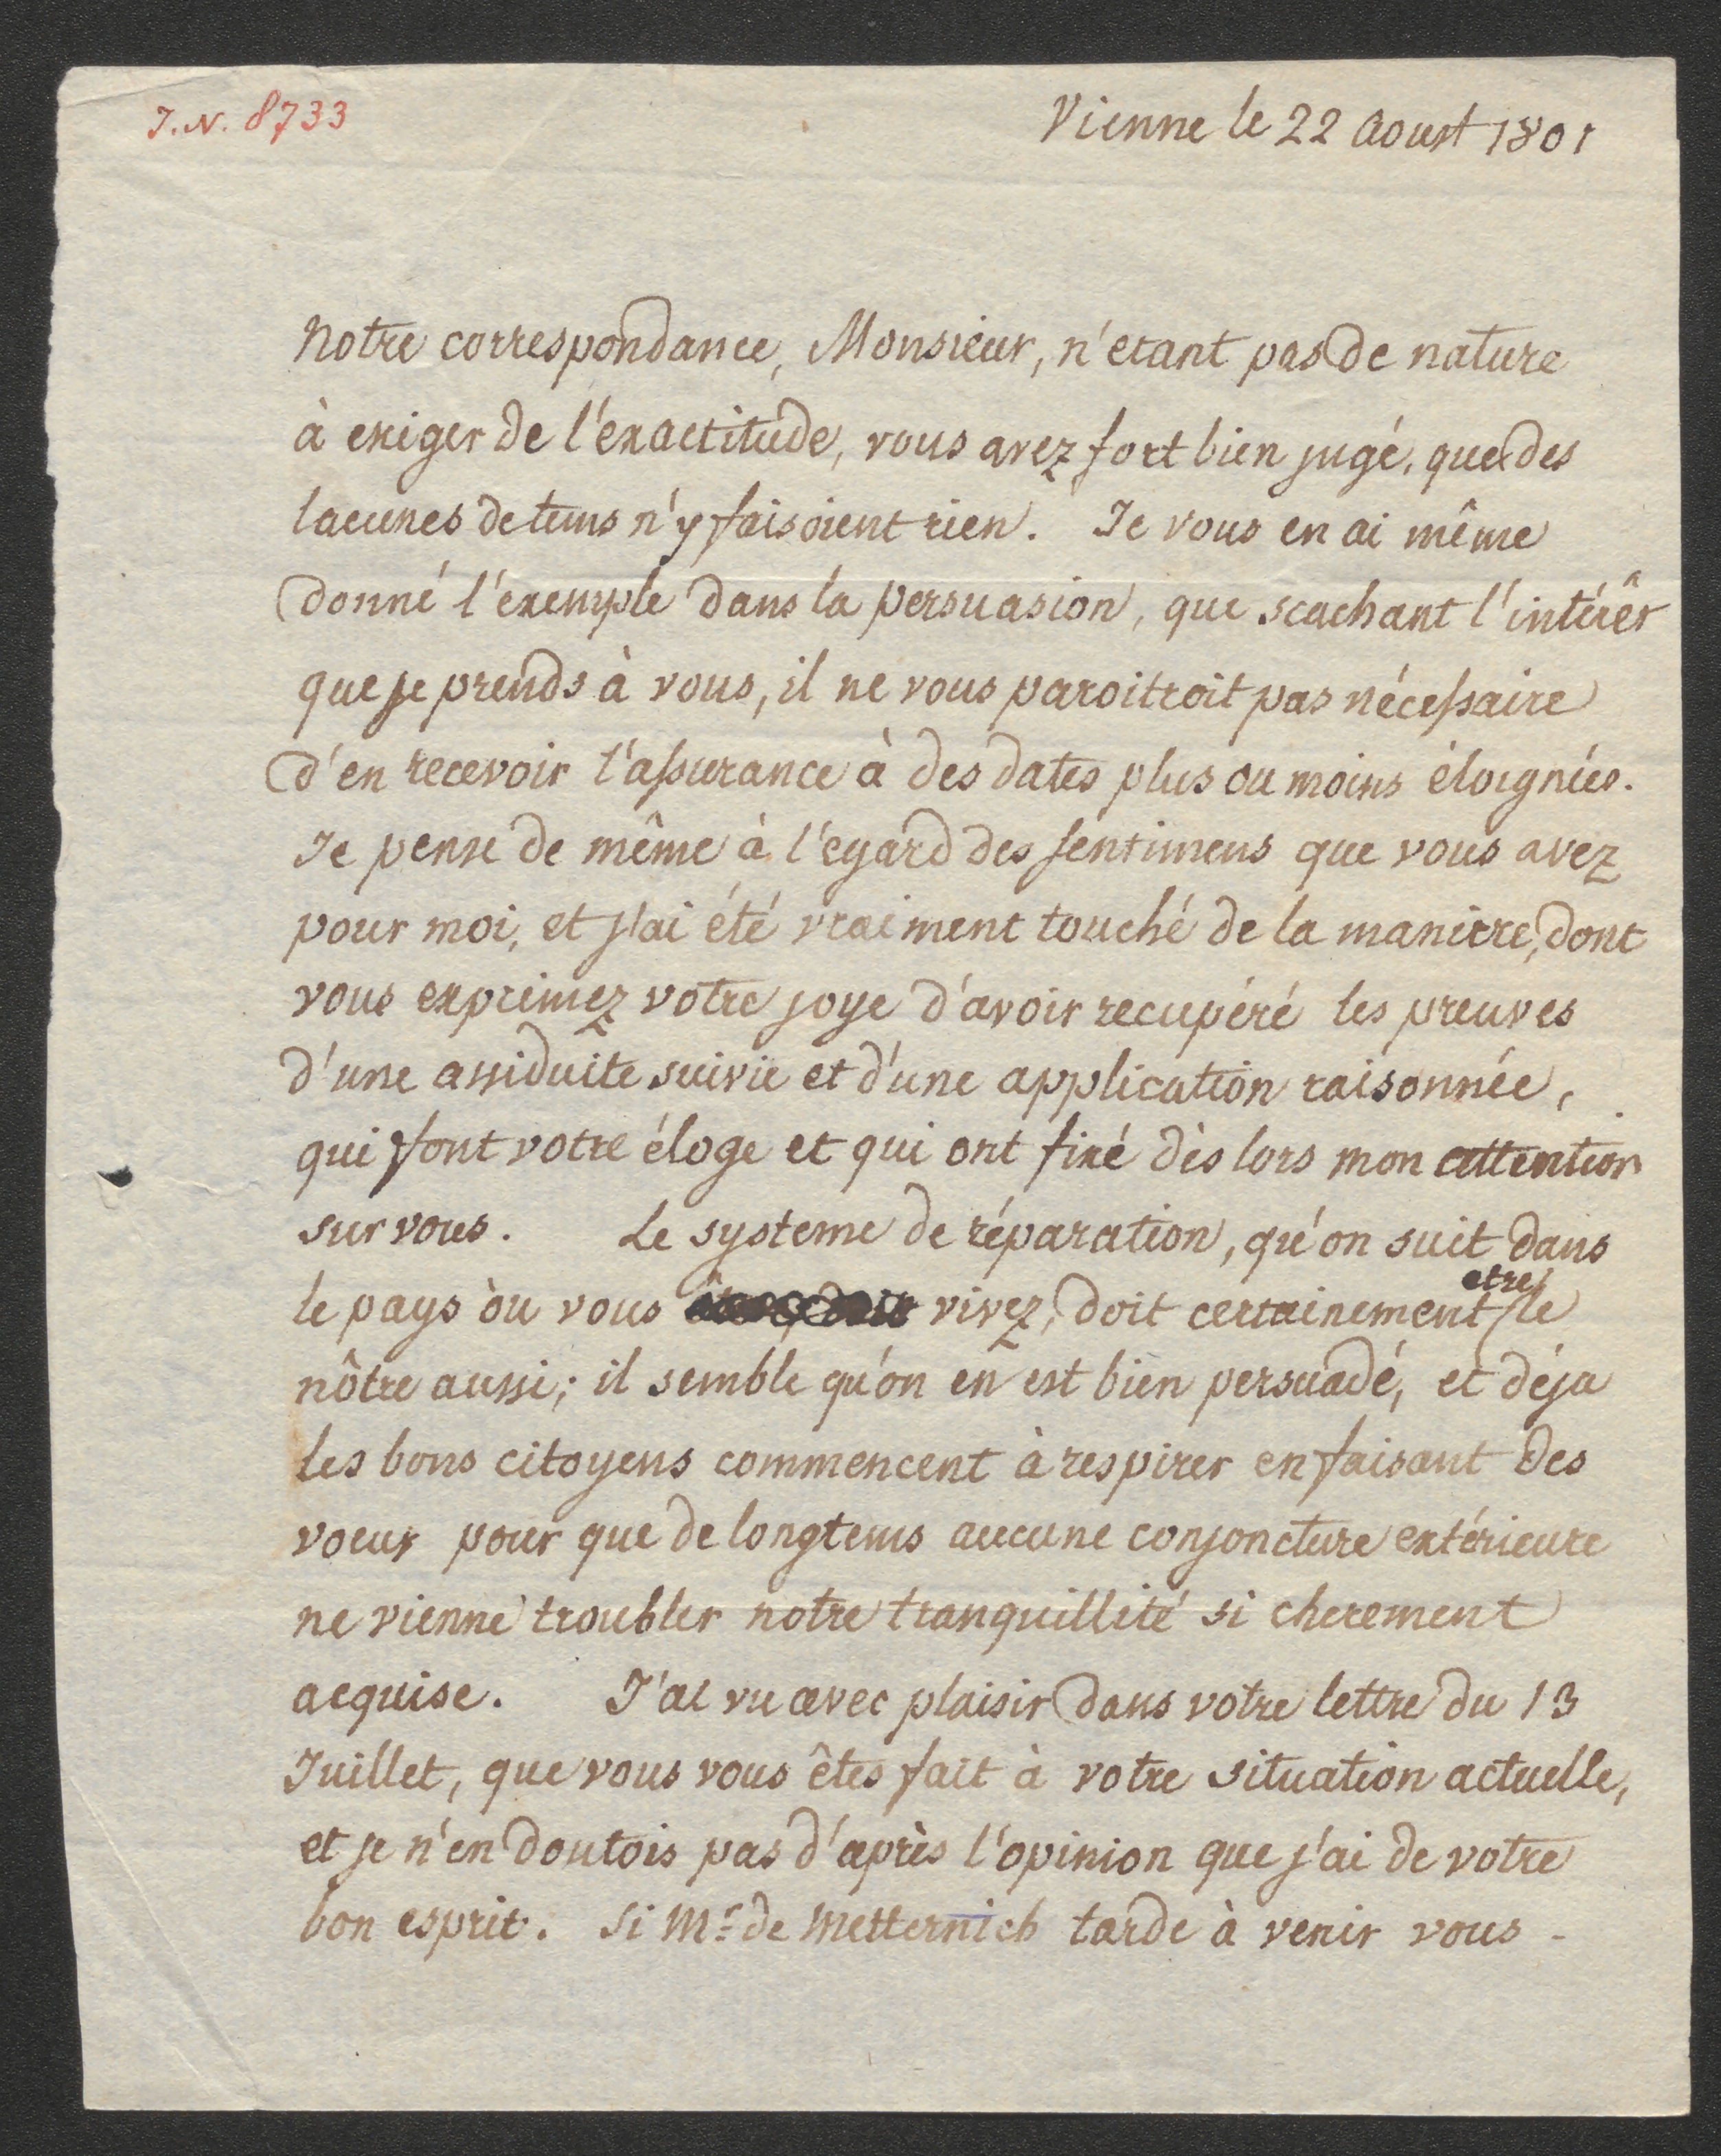 J.N. 8733
Vienne le 22 Aoust 1801
Notre correspondance, Monsieur, n'etant pas de nature
à exiger de l'éxactitude, vous avez fort bien jugé, que des
lacunes de tems n'y faisoient rien. Je vous en ai même
donné l'éxemple dans la persuasion, que scachant l'intérêt
que je prends à vous, il ne vous paroitroit pas nécessaire
d'en recevoir l'assurance à des dates plus ou moins éloignées.
Je pense de même à l'egard des sentimens que vous avez
pour moi, et j'ai été vraiment touché de la maniere, dont
vous exprimez votre joye d'avoir recupéré les preuves
d'une assiduite suivie et d'une application raisonnée,
qui font votre éloge et qui ont fixé dès lors mon attention
sur vous. Le systeme de réparation, qu'on suit dans
le pays òu vous vivez, doit certainement etre le
nôtre aussi; il semble qu'on en est bien persuadé, et déja
les bons citoyens commencent à respirer en faisant des
voeux pour que de longtems aucune conjoncture extérieure
ne vienne troubler notre tranquillité si cherement
acquise. J'ai vu avec plaisir dans votre lettre du 13
Juillet, que vous vous êtes fait à votre situation actuelle,
et je n'en doutois pas d'après l'opinion que j'ai de votre
bon esprit. Si Mr. de Metternich tarde à venir vous